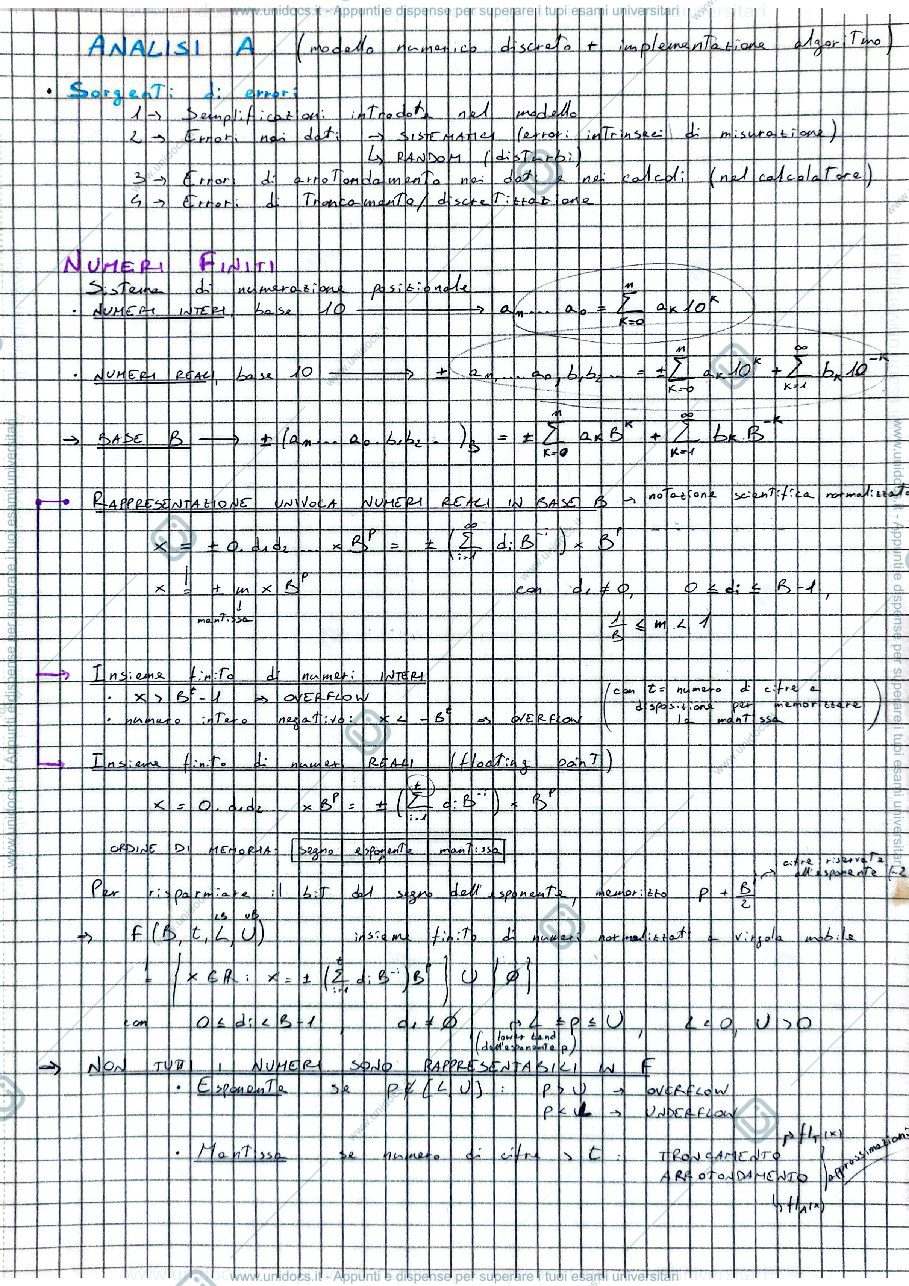 www.unidocs.it - Appunti e dispense per superare i tuoi esami universitari
ANALISI A (modello numerico discreto + implementazione algoritmo)
• Sorgenti di errori
1 → Semplificazioni introdotte nel modello
2 → Errori nei dati → SISTEMATICI (errori intrinseci di misurazione)
↳ RANDOM (disturbi)
3 → Errori di arrotondamento nei dati e nei calcoli (nel calcolatore)
4 → Errori di Troncamento/discretizzazione
NUMERI FINITI
Sistema di numerazione posizionale
• NUMERI INTERI, base 10 → an... a0 = Σ_{k=0}^{n} ak 10^k
• NUMERI REALI, base 10 → ± an... a0, b1b2... = ± Σ_{k=0}^{n} ak 10^k + Σ_{k=1}^{∞} bk 10^{-k}
→ BASE B → ± (an... a0. b1b2...)_B = ± Σ_{k=0}^{n} ak B^k + Σ_{k=1}^{∞} bk B^{-k}
RAPPRESENTAZIONE UNIVOCA NUMERI REALI IN BASE B → notazione scientifica normalizzata
x = ± 0. d1d2 ... × B^p = ± (Σ_{i=1}^{∞} di B^{-i}) × B^p
x = ± m × B^p con d1 ≠ 0, 0 ≤ di ≤ B-1,
mantissa 1/B ≤ m < 1
→ Insieme finito di numeri INTERI
• x > B^t - 1 ⇒ OVERFLOW
• numero intero negativo: x < -B^t ⇒ OVERFLOW
(con t = numero di cifre a
disposizione per memorizzare
la mantissa)
→ Insieme finito di numeri REALI (floating point)
x = 0. d1d2 × B^p = ± (Σ_{i=1}^{t} di B^{-i}) × B^p
ORDINE DI MEMORIA: segno esponente mantissa
cifre riservate
all'esponente
Per risparmiare il bit del segno dell'esponente, memorizzo p + B/2
LB UB
→ F (B, t, L, U) insieme finito di numeri normalizzati a virgola mobile
= { x ∈ R: x = ± (Σ_{i=1}^{t} di B^{-i}) B^p } ∪ {Ø}
con 0 ≤ di < B-1, d1 ≠ Ø, L ≤ p ≤ U, L < 0, U > 0
(lower band
dell'esponente p)
→ NON TUTTI I NUMERI SONO RAPPRESENTABILI IN F
• Esponente se p ∉ [L, U]: p > U → OVERFLOW
p < L → UNDERFLOW
• Mantissa se numero di cifre > t: TRONCAMENTO flT(x)
ARROTONDAMENTO approssimazioni
↳ flA(x)
www.unidocs.it - Appunti e dispense per superare i tuoi esami universitari
www.unidocs.it - Appunti e dispense per superare i tuoi esami universitari
www.unidocs.it - Appunti e dispense per superare i tuoi esami universitari